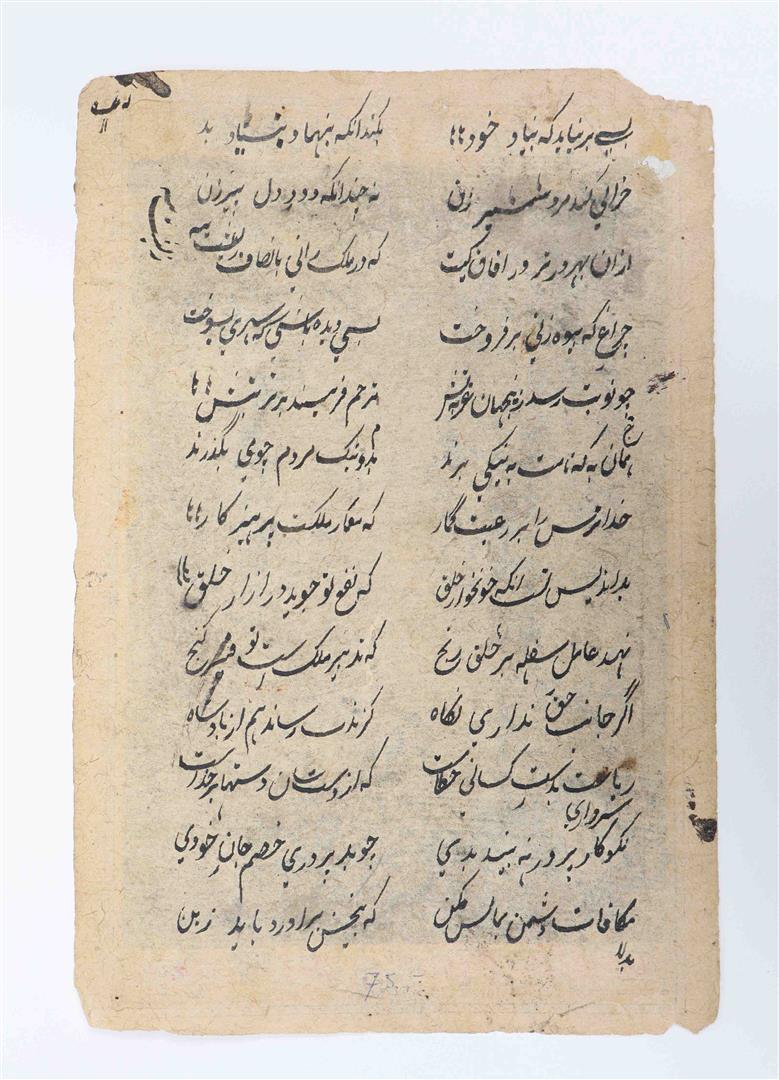 بسی بر نیاید که بنیاد خود بکند انکه بنهاد بنیاد بد
خرابی کند مرد شمشیر زن نه چندانکه دود دل پیرزن
ازان بهرورتر در افاق کیست که در ملک رانی بانصاف زیست
چراغی که بیوه زنی برفروخت بسی دیده باشی که شهری بسوخت
چو نوبت رسد زین جهان غربتش ترحم فرستند بر تربتش
همان به که نامت به نیکی برند بد و نیک مردم چو می بگذرند
خدا ترس را بر رعیت گمار که معمار ملکت پرهیزکار
بد اندیش تست انکه خونخوار خلق که نفع تو جوید در ازار خلق
نهد عامل سفله بر خلق رنج که تدبیر ملک است توفیر گنج
اگر جانب حق نداری نگاه گزندت رساند هم از پادشاه
ریاست بدست کسانی خطاست که از دستشان دستها بر خداست
نکوکار پرور نه بیند بدی چو بد پروری خصم جان خودی
مکافات دشمن بمالش مکن که بیخش براورد باید ز بن